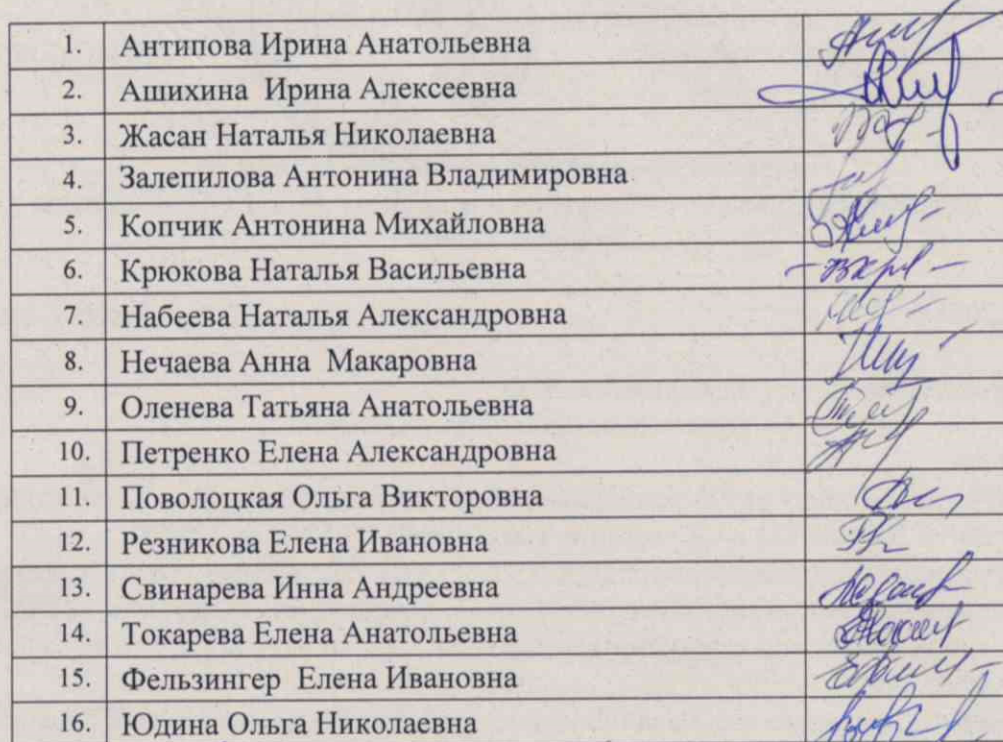 1. Антипова Ирина Анатольевна
2. Ашихина Ирина Алексеевна
3. Жасан Наталья Николаевна
4. Залепилова Антонина Владимировна
5. Копчик Антонина Михайловна
6. Крюкова Наталья Васильевна
7. Набеева Наталья Александровна
8. Нечаева Анна Макаровна
9. Оленева Татьяна Анатольевна
10. Петренко Елена Александровна
11. Поволоцкая Ольга Викторовна
12. Резникова Елена Ивановна
13. Свинарева Инна Андреевна
14. Токарева Елена Анатольевна
15. Фельзингер Елена Ивановна
16. Юдина Ольга Николаевна